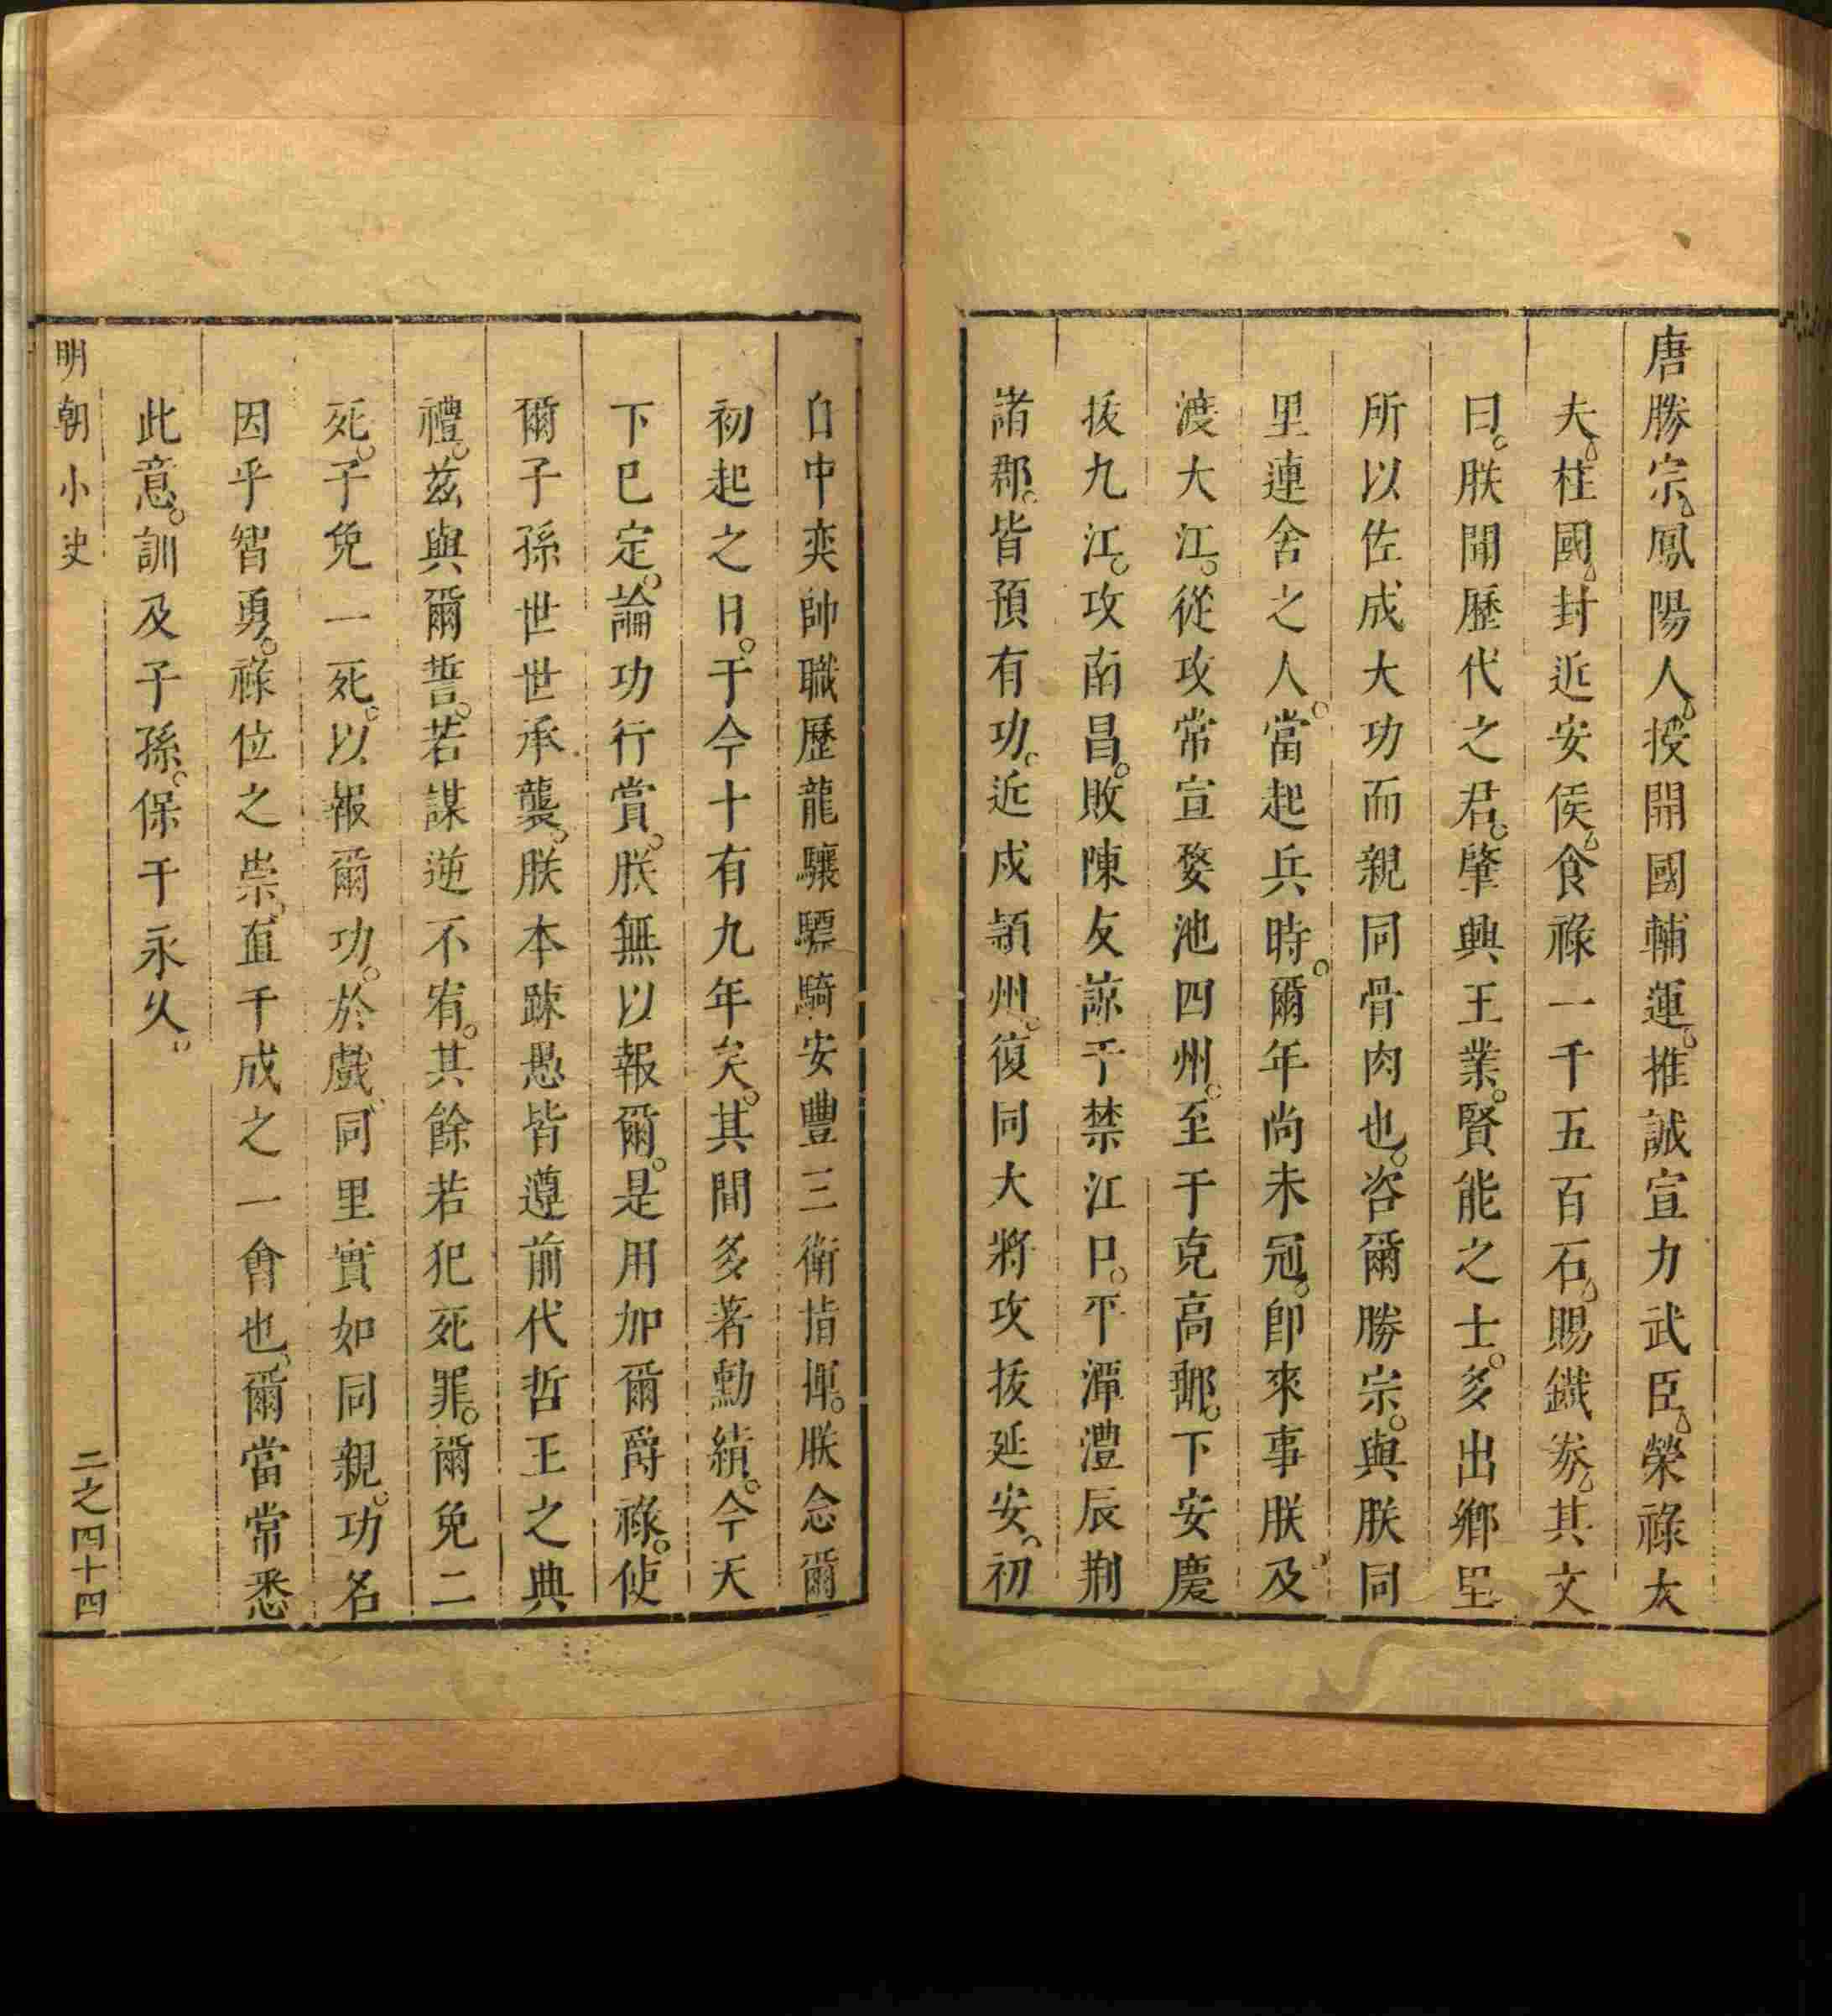 唐勝宗鳳陽人授開國輔運推誠宣力武臣榮祿大
夫柱國封近安侯食祿一千五百石賜鐵券其文
曰朕聞歷代之君肇興王業賢能之士多出鄉里
所以佐成大功而親同骨肉也咨爾勝宗與朕同
里連舍之人當起兵時爾年尚未冠卽來事朕及
渡大江從攻常宣婺池四州至于克高郵下安慶
拔九江攻南昌敗陳友諒于禁江口平潭澧辰荆
諸郡皆預有功近戍潁州復同大將攻拔延安初
自中奕帥職歷龍驤驃騎安豐三衛指揮朕念爾
初起之日于今十有九年矣其間多著勳績今天
下巳定論功行賞朕無以報爾是用加爾爵祿使
爾子孫世世承襲朕本踈愚皆遵前代哲王之典
禮茲與爾誓若謀逆不宥其餘若犯死罪爾免二
死子免一死以報爾功於戲同里實如同親功名
因乎智勇祿位之崇直千成之一會也爾當常悉
此意訓及子孫保于永久
明朝小史
二之四十四